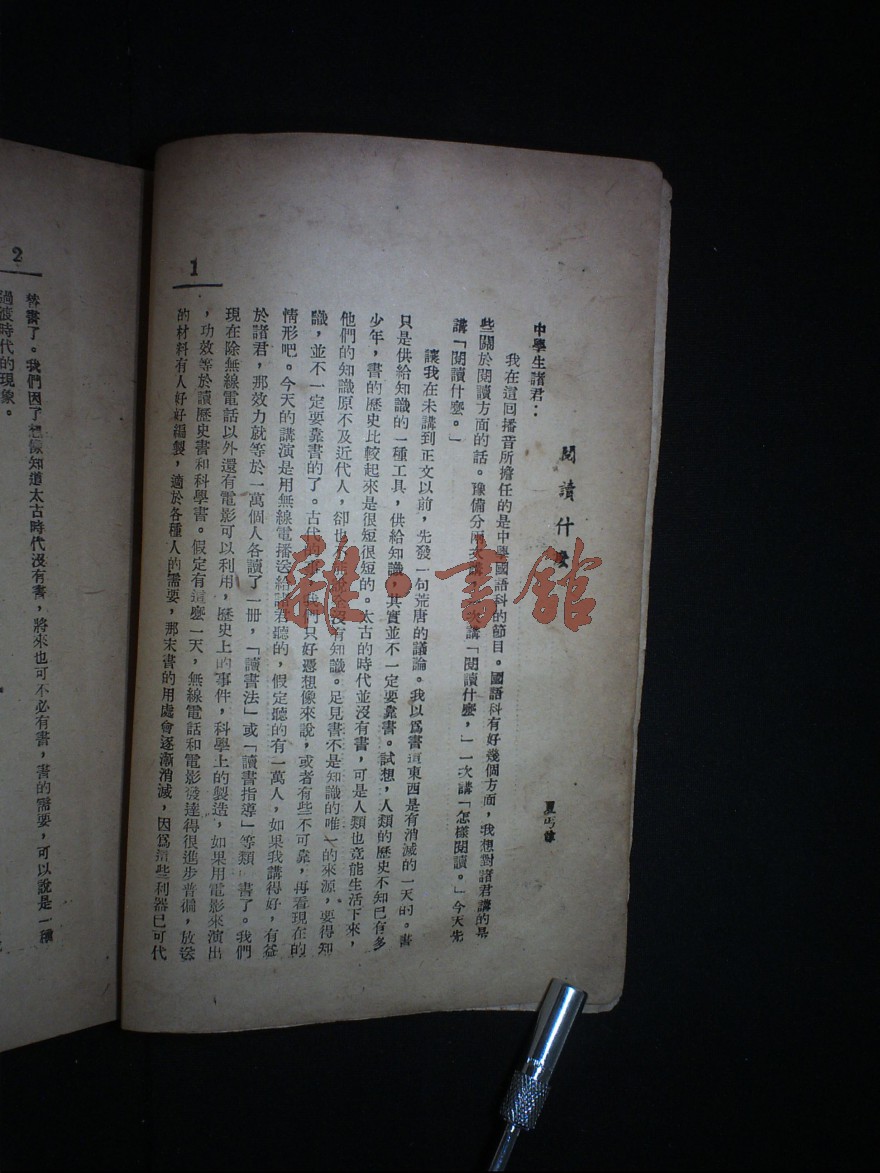 閱讀什麼
夏丏尊
中學生諸君：
我在這回播音所擔任的是中學國語科的節目。國語科有好幾個方面，我想對諸君講的是
些關於閱讀方面的話。豫備分兩次講，一次講「閱讀什麼，」一次講「怎樣閱讀。」今天先
講「閱讀什麼。」
讓我在未講到正文以前，先發一句荒唐的議論。我以爲書這東西是有消滅的一天的。書
只是供給知識的一種工具，供給知識，其實並不一定要靠書。試想，人類的歷史不知已有多
少年，書的歷史比較起來是很短很短的。太古的時代並沒有書，可是人類也竟能生活下來，
他們的知識原不及近代人，卻也不能說全沒有知識。足見書不是知識的唯一的來源，要得知
識，並不一定要靠書的了。古代的事，我們只好憑想像來說，或者有些不可靠，再看現在的
情形吧。今天的講演是用無線電播送給諸君聽的，假定聽的有一萬人，如果我講得好，有益
於諸君，那效力就等於一萬個人各讀了一冊，「讀書法」或「讀書指導」等類 書了。我們
現在除無線電話以外還有電影可以利用，歷史上的事件，科學上的製造，如果用電影來演出
，功效等於讀歷史書和科學書。假定有這麼一天，無線電話和電影發達得很進步普徧，放送
的材料有人好好編製，適於各種人的需要，那末書的用處會逐漸消滅，因爲這些利器已可代
1
2
替書了。我們因了想像知道太古時代沒有書，將來也可不必有書，書的需要，可以說是一種
過渡時代的現象。
雜·書館